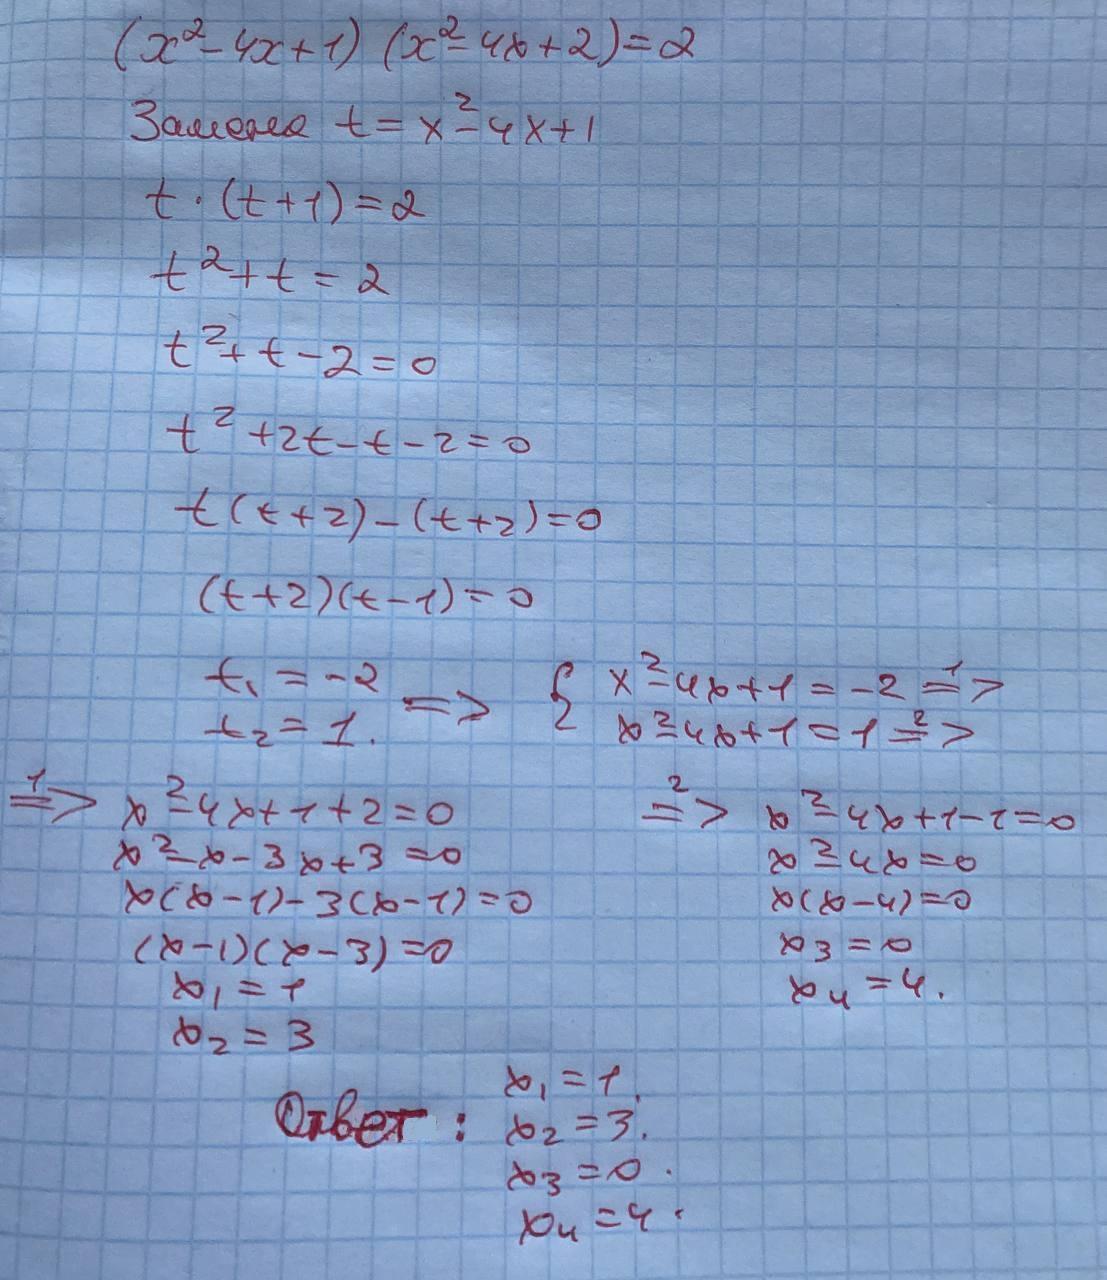 (x²-4x+1)(x²-4x+2)=2
Замена t=x²-4x+1
t·(t+1)=2
t²+t=2
t²+t-2=0
t²+2t-t-2=0
t(t+2)-(t+2)=0
(t+2)(t-1)=0
t₁=-2
t₂=1.
=> {
x²-4x+1=-2 1=>
x²-4x+1=1 2=>
1=> x²-4x+1+2=0
x²-x-3x+3=0
x(x-1)-3(x-1)=0
(x-1)(x-3)=0
x₁=1
x₂=3
2=> x²-4x+1-1=0
x²-4x=0
x(x-4)=0
x₃=0
x₄=4.
Ответ:
x₁=1.
x₂=3.
x₃=0.
x₄=4.